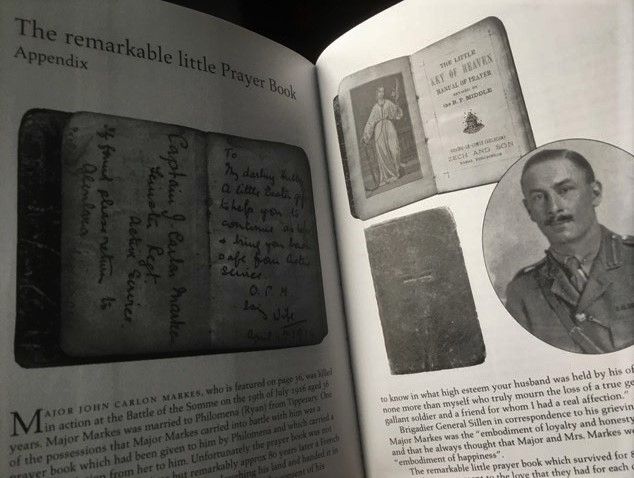 The remarkable little Prayer Book
Appendix
Captain J Carlon Markes
Leinster Regt.
Active Service.
If found please return to
To
My darling Hubby
A little Easter gift
to help you to
continue as
& bring you back
safe from Active
Service.
O. P. M.
Wife
April 1916
MAJOR JOHN CARLON MARKES, who is featured on page 36, was killed
in action at the Battle of the Somme on the 19th of July 1916 aged 36
years. Major Markes was married to Philomena (Ryan) from Tipperary. One
of the possessions that Major Markes carried into battle with him was a
prayer book which had been given to him by Philomena and which carried a
from her to him. Unfortunately the prayer book was not
but remarkably approx 80 years later a French
his land and handed it in
of his
THE LITTLE
KEY OF HEAVEN
MANUAL OF PRAYER
REVISED BY
the R. P. MIDDLE
ZECH AND SON
to know in what high esteem your husband was held by his of
none more than myself who truly mourn the loss of a true ge
gallant soldier and a friend for whom I had a real affection."
Brigadier General Sillen in correspondence to his grieving
Major Markes was the "embodiment of loyalty and honesty
and that he always thought that Major and Mrs. Markes we
"embodiment of happiness".
The remarkable little prayer book which survived for 8
to the love that they had for each o